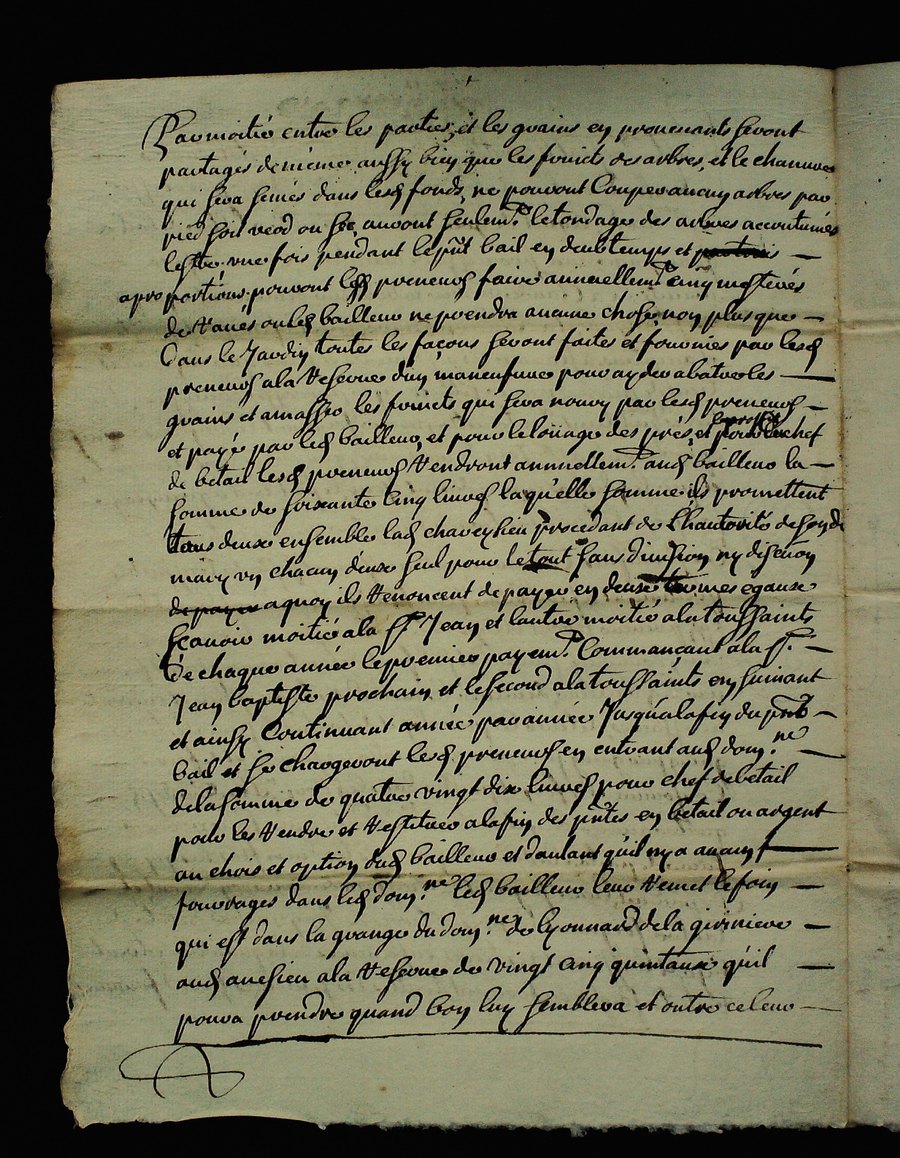 Par moitié entre les parties, et les grains en provenants seront
partagés de meme aussy bien que les fruits des arbres, et le chanvre
qui sera semés dans lesd fonds, ne pouvont Couper aucun arbres par
pied soit verd ou sec, auront seulemt. le tondage des arbres accoutumés
lestre une fois pendant le pnt bail en deub temps et
a proportions pouvont lesd preneurs faire annuellemt. cinq mestives
de raves ou led bailleur ne prendra aucune chose, non plus que
Dans le Jardin, toutes les façons seront faites et fournies par lesd
preneurs a la reserve d'un maneufure pour ayder a batre les
grains et amasser les fruits qui sera nourry par lesd preneurs
et payé par led bailleur, et pour le loüage des prés, et le proffit du chef
de betail lesd preneurs rendront annuellemt. aud bailleur la
somme de soixante Cinq livres laqu'elle somme ils promettent
tous deux ensemble lad proCedant de Lhautorité de son d
mary un chacun d'eux seul pour le tout sans division ny
de payer a quoy ils renoncent de payer en deux termes egaux
sçavoir moitié a la St Jean et l'autre moitié a la toussaints
de chaque année le premier payemt. Commançant a la St.
Jean baptiste prochain, et le second a la toussaints ensuivant
et ainsy Continuant année par année Jusqu'a la fin du pnt
bail et se chargeront lesd preneurs en entrant aud dom.ne
de la somme de quatre vingt dix livres pour chef de betail
pour les rendre et restituer a la fin des pntes en betail ou argent
au choix et option dud bailleur et d'autant qu'il ny a aucun
fourrages dans led dom.ne led bailleur leur remet le foin
qui est dans la grange du dom.ne de lyonnard de la
aud a la reserve de vingt Cinq quintaux qu'il
pourra prendre quand bon luy semblera et outre ce leur